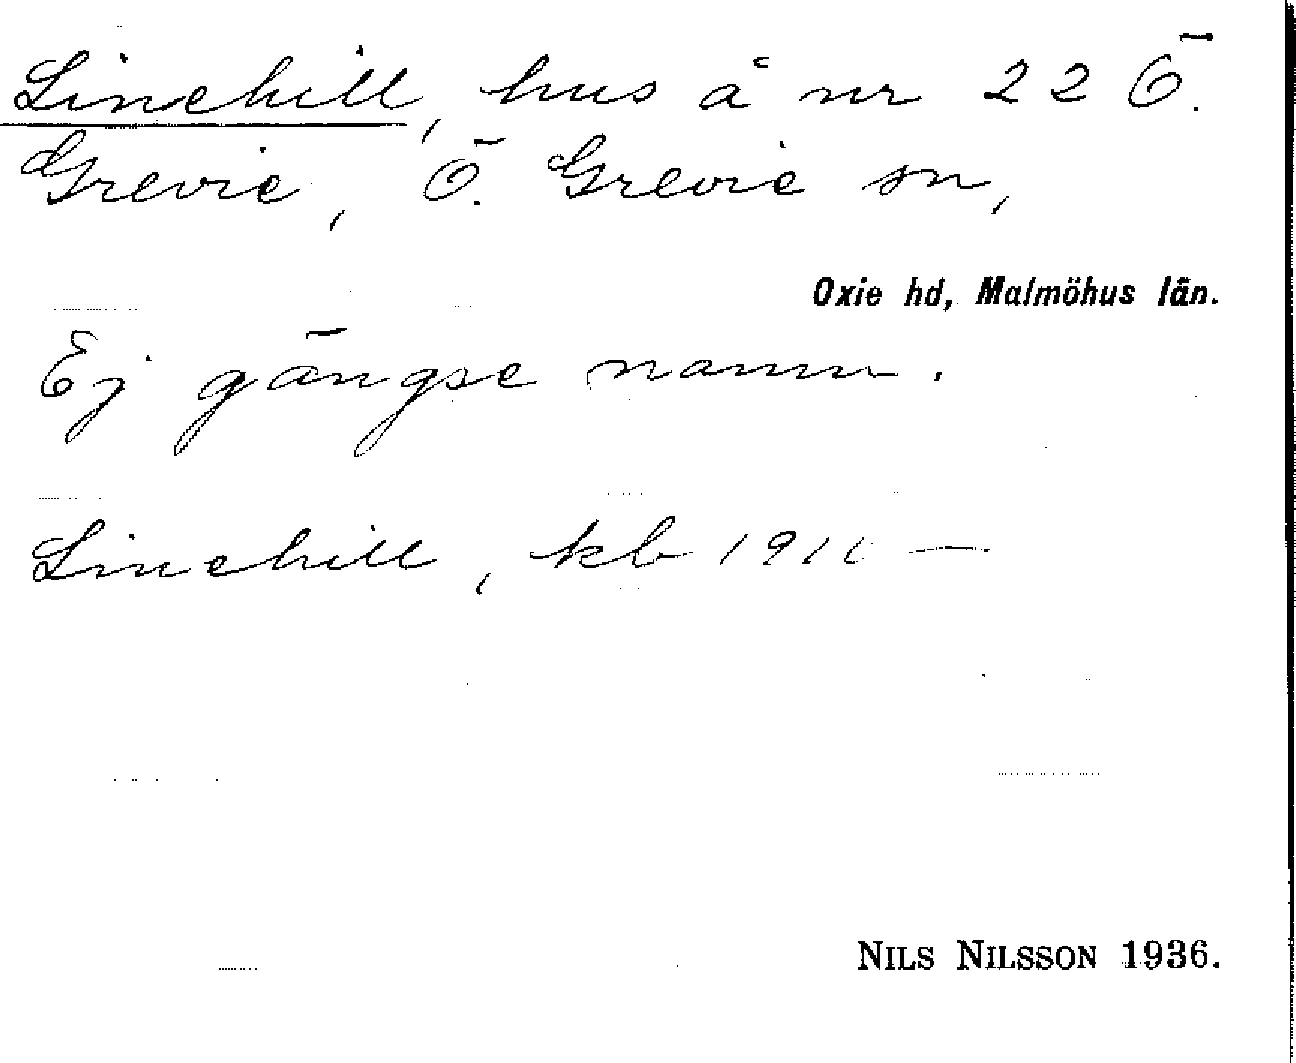 Linehill, hus å nr 22 Ö.
Grevie, Ö. Grevie sn,
Oxie hd, Malmöhus län.
Ej gängse namn.
Linehill, kb 1910 —
NILS NILSSON 1936.